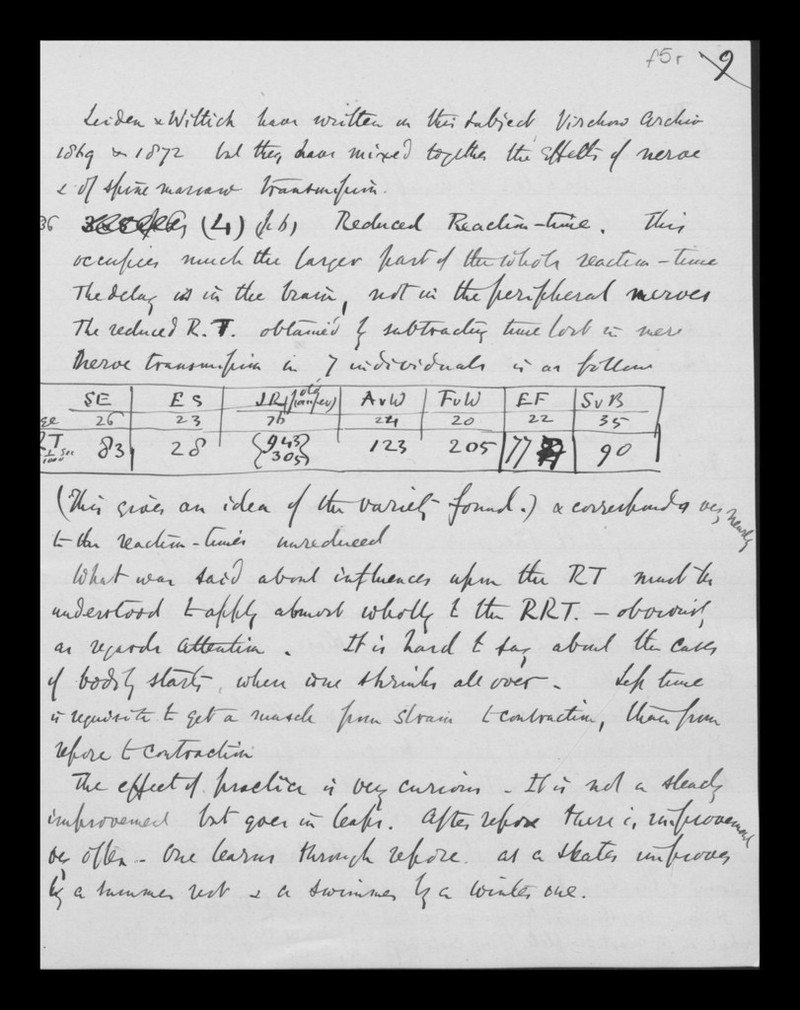 f5r 9
Leiden & Wittich have written on this subject Virchow Archiv
1869 & 1872 but they have mixed together the effects of nerve
& of spine marrow transmission.
36 (4) (b) Reduced Reaction-time. This
occupies much the larger part of the whole reaction-time
The delay is in the brain, not in the peripheral nerves
The reduced R.T. obtained by subtracting time lost in mere
nerve transmission in 7 individuals is as follow
SE ES JR (old pauper) AvW FvW EF SvB
ge 26 23 76 24 20 22 35
RT 1/1000 sec 83 28 {943 305} 123 205 77 90
(This gives an idea of the variety found.) & corresponds very nearly
to the reaction-times unreduced
What was said about influences upon the RT must be
understood to apply almost wholly to the RRT. – obviously,
as regards attention. It is hard to say about the cases
of bodily starts, when one shrinks all over – Less time
is requisite to get a muscle from strain to contraction, than from
repose to contraction
The effect of practice is very curious – It is not a steady
improvement but goes in leaps. After repose there is improvement
very often – One learns through repose. as a skater improves
by a summer rest & a swimmer by a winter one.